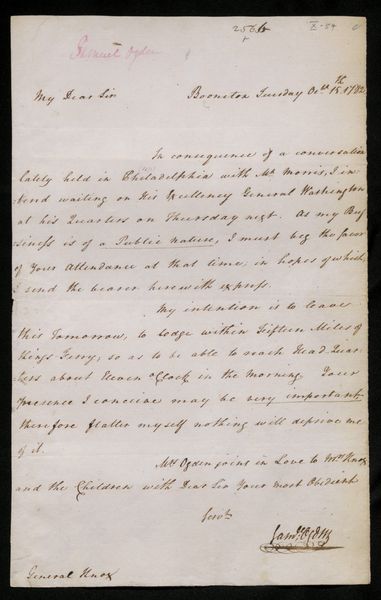 2566
X-54
Samuel Ogden
My Dear Sir
Boonton Tuesday Octr 15th 1782
In consequence of a conversation
lately held in Philadelphia with Mr. Morris, I in-
tend waiting on His Excellency General Washington
at his Quarters on Thursday next. As my Bus-
siness is of a Public nature, I must beg the favor
of Your Attendance at that time, in hopes of which,
I send the bearer herewith express.
My intention is to leave
this Tomorrow, to Lodge within Fifteen Miles of
Kings Ferry, so as to be able to reach Head Quar-
ters about Eleven oClock in the morning. Your
Presence I conceive may be very important
therefore flatter myself nothing will deprive me
of it.
Mrs Ogden joins in Love to Mrs Knox
and the Children with Dear Sir Your most Obedient
Servt
Saml Ogden
General Knox